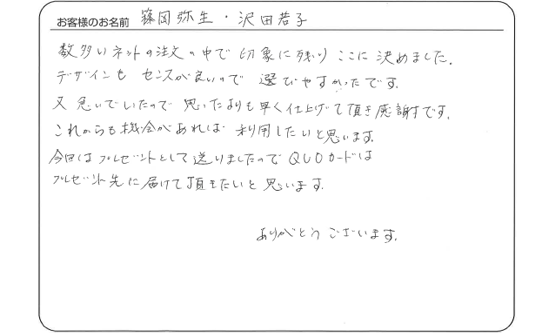 お客様のお名前 篠岡弥生・沢田若子
数多いネットの注文の中で印象に残り ここに決めました。
デザインも センスが良いので 選びやすかったです。
又 急いでいたので 思ったよりも早く仕上げて頂き感謝です。
これからも機会があれば 利用したいと思います。
今回はプレゼントとして送りましたので QUOカードは
プレゼント先に届けて頂きたいと思います。
ありがとうございます。